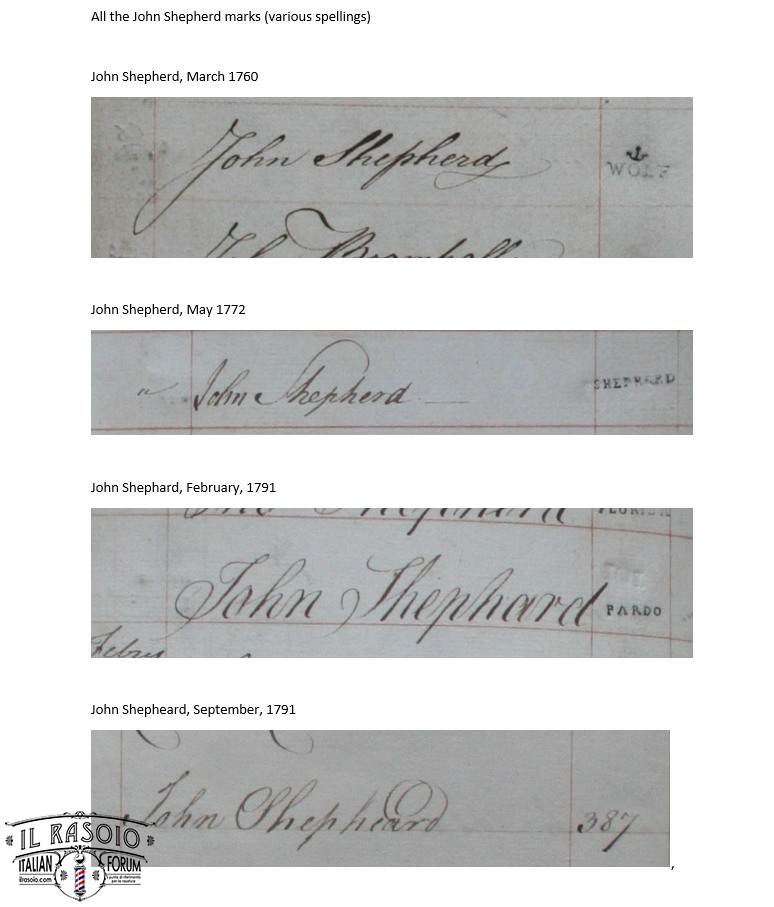 All the John Shepherd marks (various spellings)
John Shepherd, March 1760
John Shepherd
WOLF
John Shepherd, May 1772
John Shepherd
SHEPHERD
John Shephard, February, 1791
John Shephard
PARDO
Febry
John Shepheard, September, 1791
John Shepheard
387
,
IL RASOIO
ITALIAN FORUM
ilrasoio.com